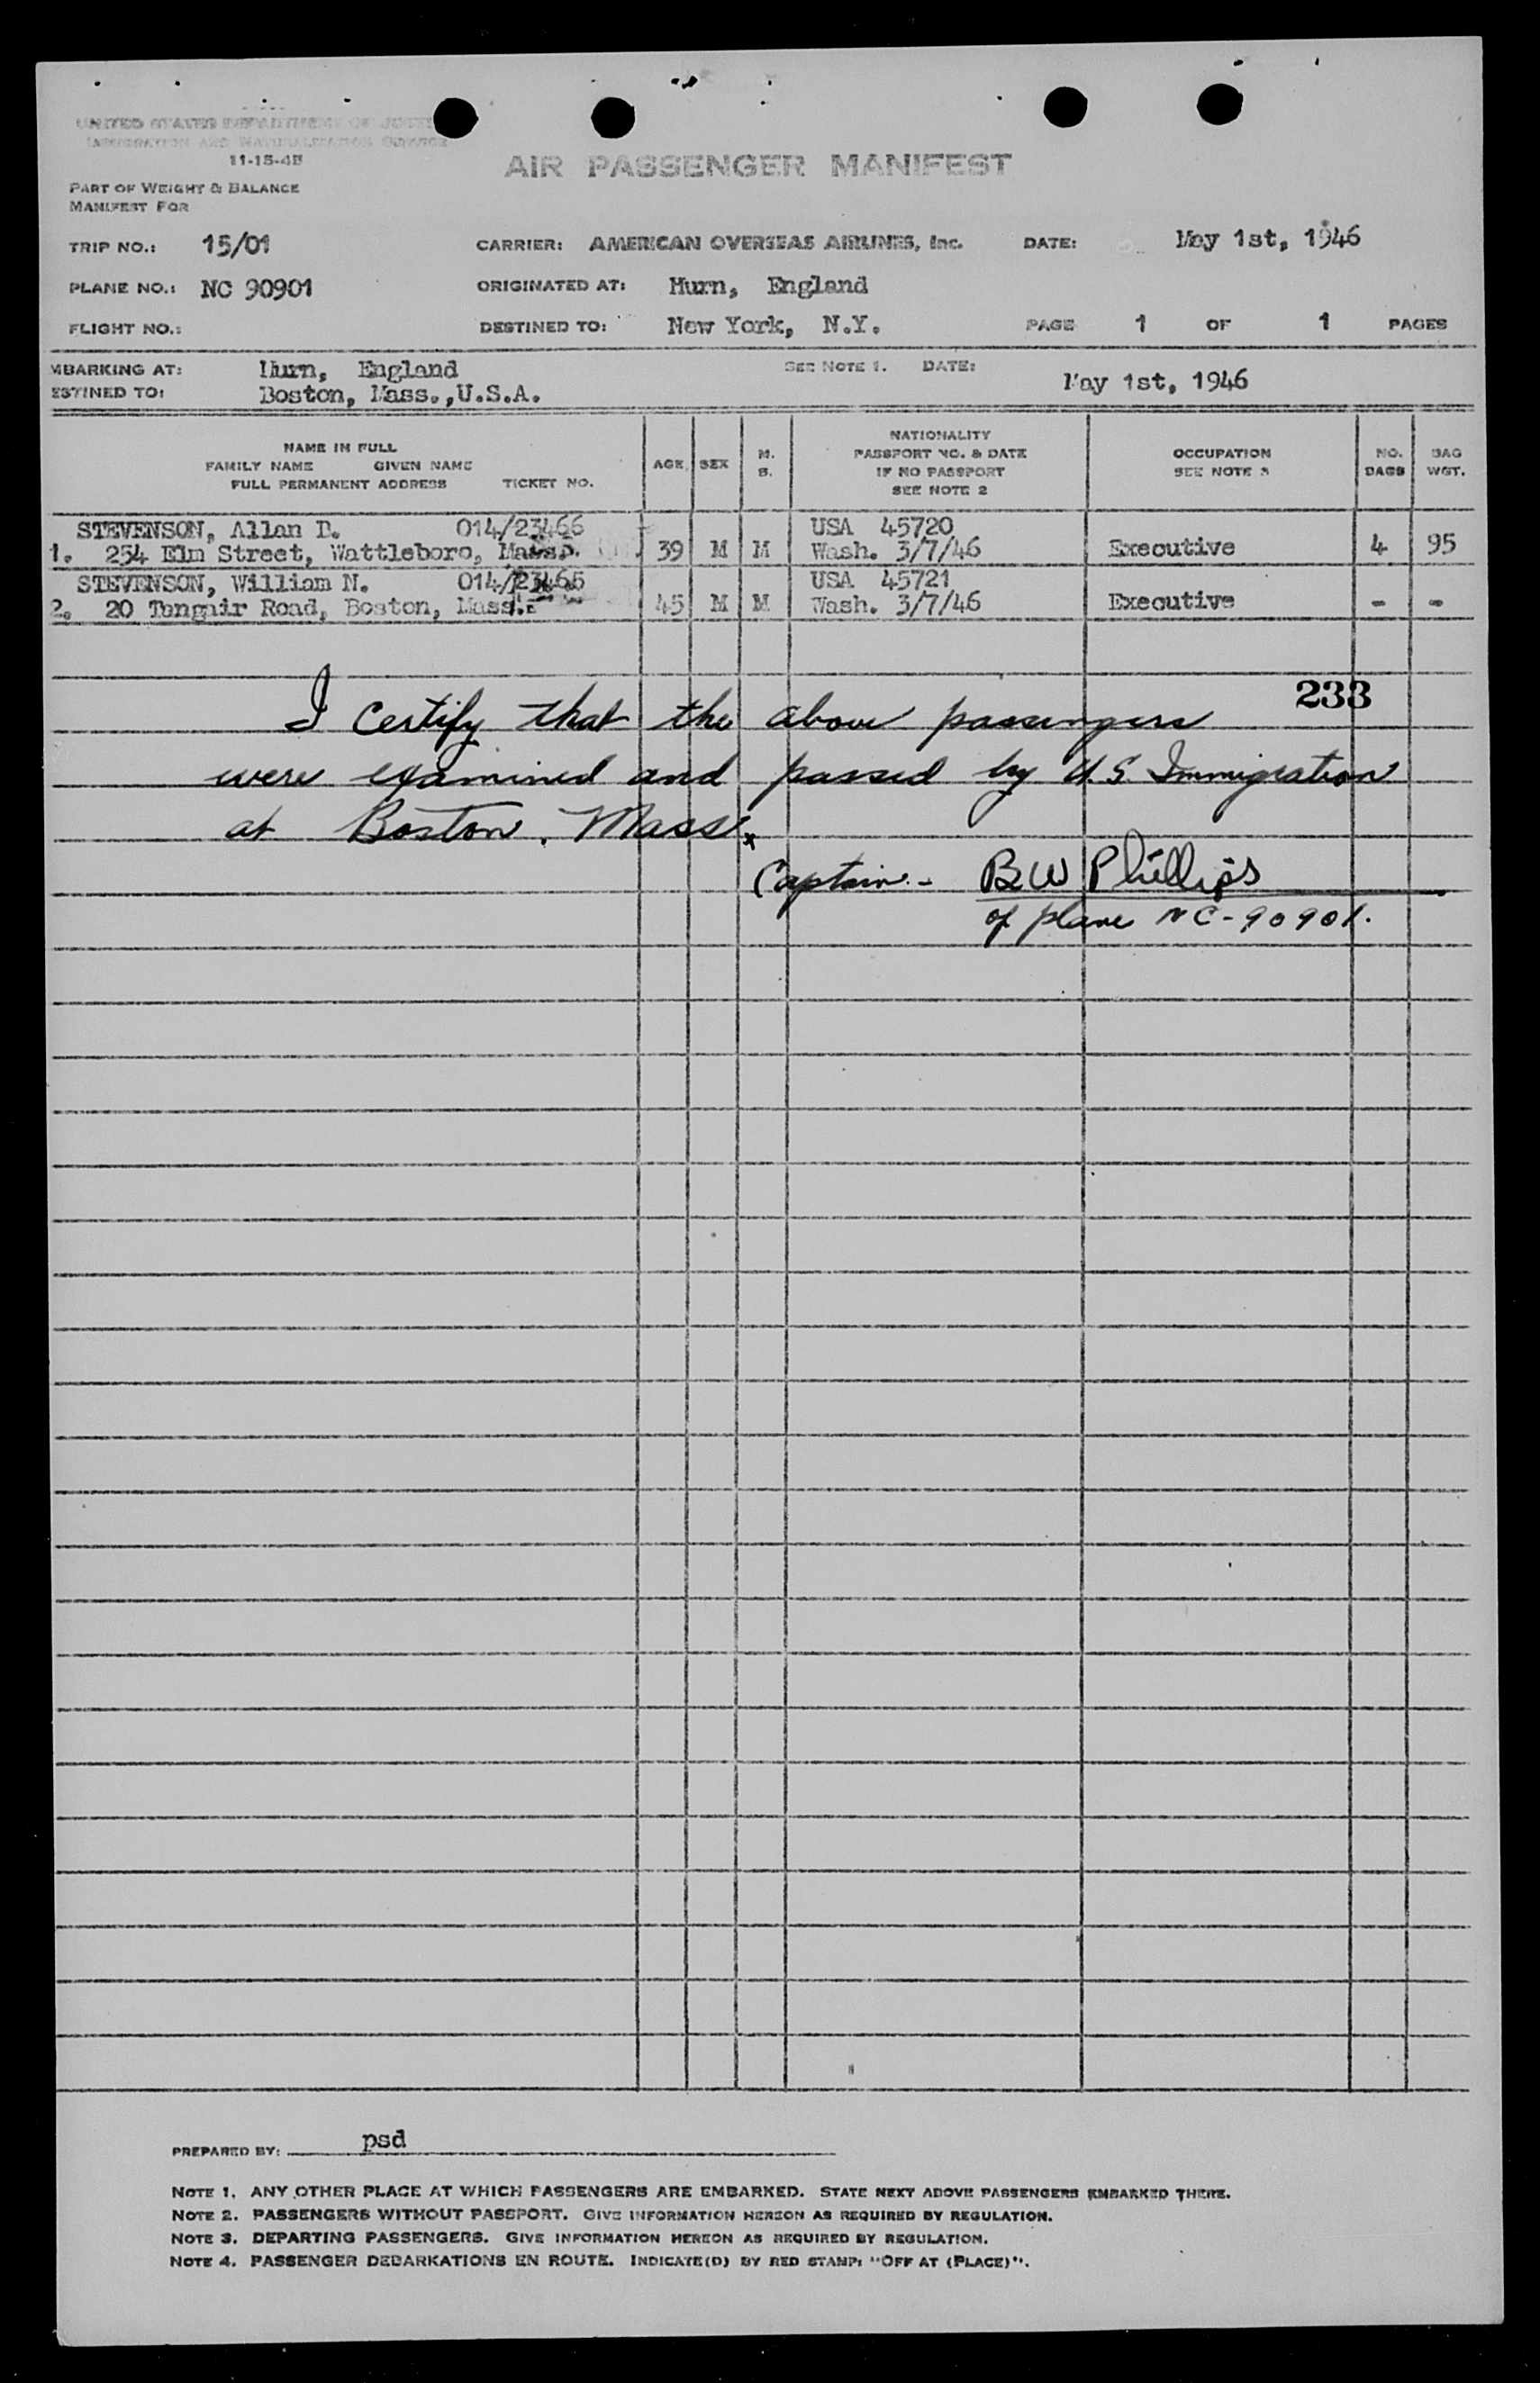 UNITED STATES DEPARTMENT OF JUSTICE
IMMIGRATION AND NATURALIZATION SERVICE
11-15-45
AIR PASSENGER MANIFEST
PART OF WEIGHT & BALANCE
MANIFEST FOR
TRIP NO.: 15/01 CARRIER: AMERICAN OVERSEAS AIRLINES, Inc. DATE: May 1st, 1946
PLANE NO.: NC 90901 ORIGINATED AT: Hurn, England
FLIGHT NO.: DESTINED TO: New York, N.Y. PAGE 1 OF 1 PAGES
MBARKING AT: Hurn, England SEE NOTE 1. DATE: May 1st, 1946
ESTINED TO: Boston, Mass.,U.S.A.
NAME IN FULL
FAMILY NAME GIVEN NAME
FULL PERMANENT ADDRESS TICKET NO.
AGE SEX M. S.
NATIONALITY
PASSPORT NO. & DATE
IF NO PASSPORT
SEE NOTE 2
OCCUPATION
SEE NOTE 3
NO. BAGS
BAG WGT.
STEVENSON, Allan D. 014/23466 USA 45720
1. 254 Elm Street, Wattleboro, Mass. 39 M M Wash. 3/7/46 Executive 4 95
STEVENSON, William N. 014/23465 USA 45721
2. 20 Tengair Road, Boston, Mass. 45 M M Wash. 3/7/46 Executive - -
233
I certify that the above passengers
were examined and passed by U.S Immigration
at Boston, Mass.
Captain - BW Phillips
of plane NC-90901.
PREPARED BY: psd
NOTE 1. ANY OTHER PLACE AT WHICH PASSENGERS ARE EMBARKED. STATE NEXT ABOVE PASSENGERS EMBARKED THERE.
NOTE 2. PASSENGERS WITHOUT PASSPORT. GIVE INFORMATION HEREON AS REQUIRED BY REGULATION.
NOTE 3. DEPARTING PASSENGERS. GIVE INFORMATION HEREON AS REQUIRED BY REGULATION.
NOTE 4. PASSENGER DEBARKATIONS EN ROUTE. INDICATE(D) BY RED STAMP: "OFF AT (PLACE)".